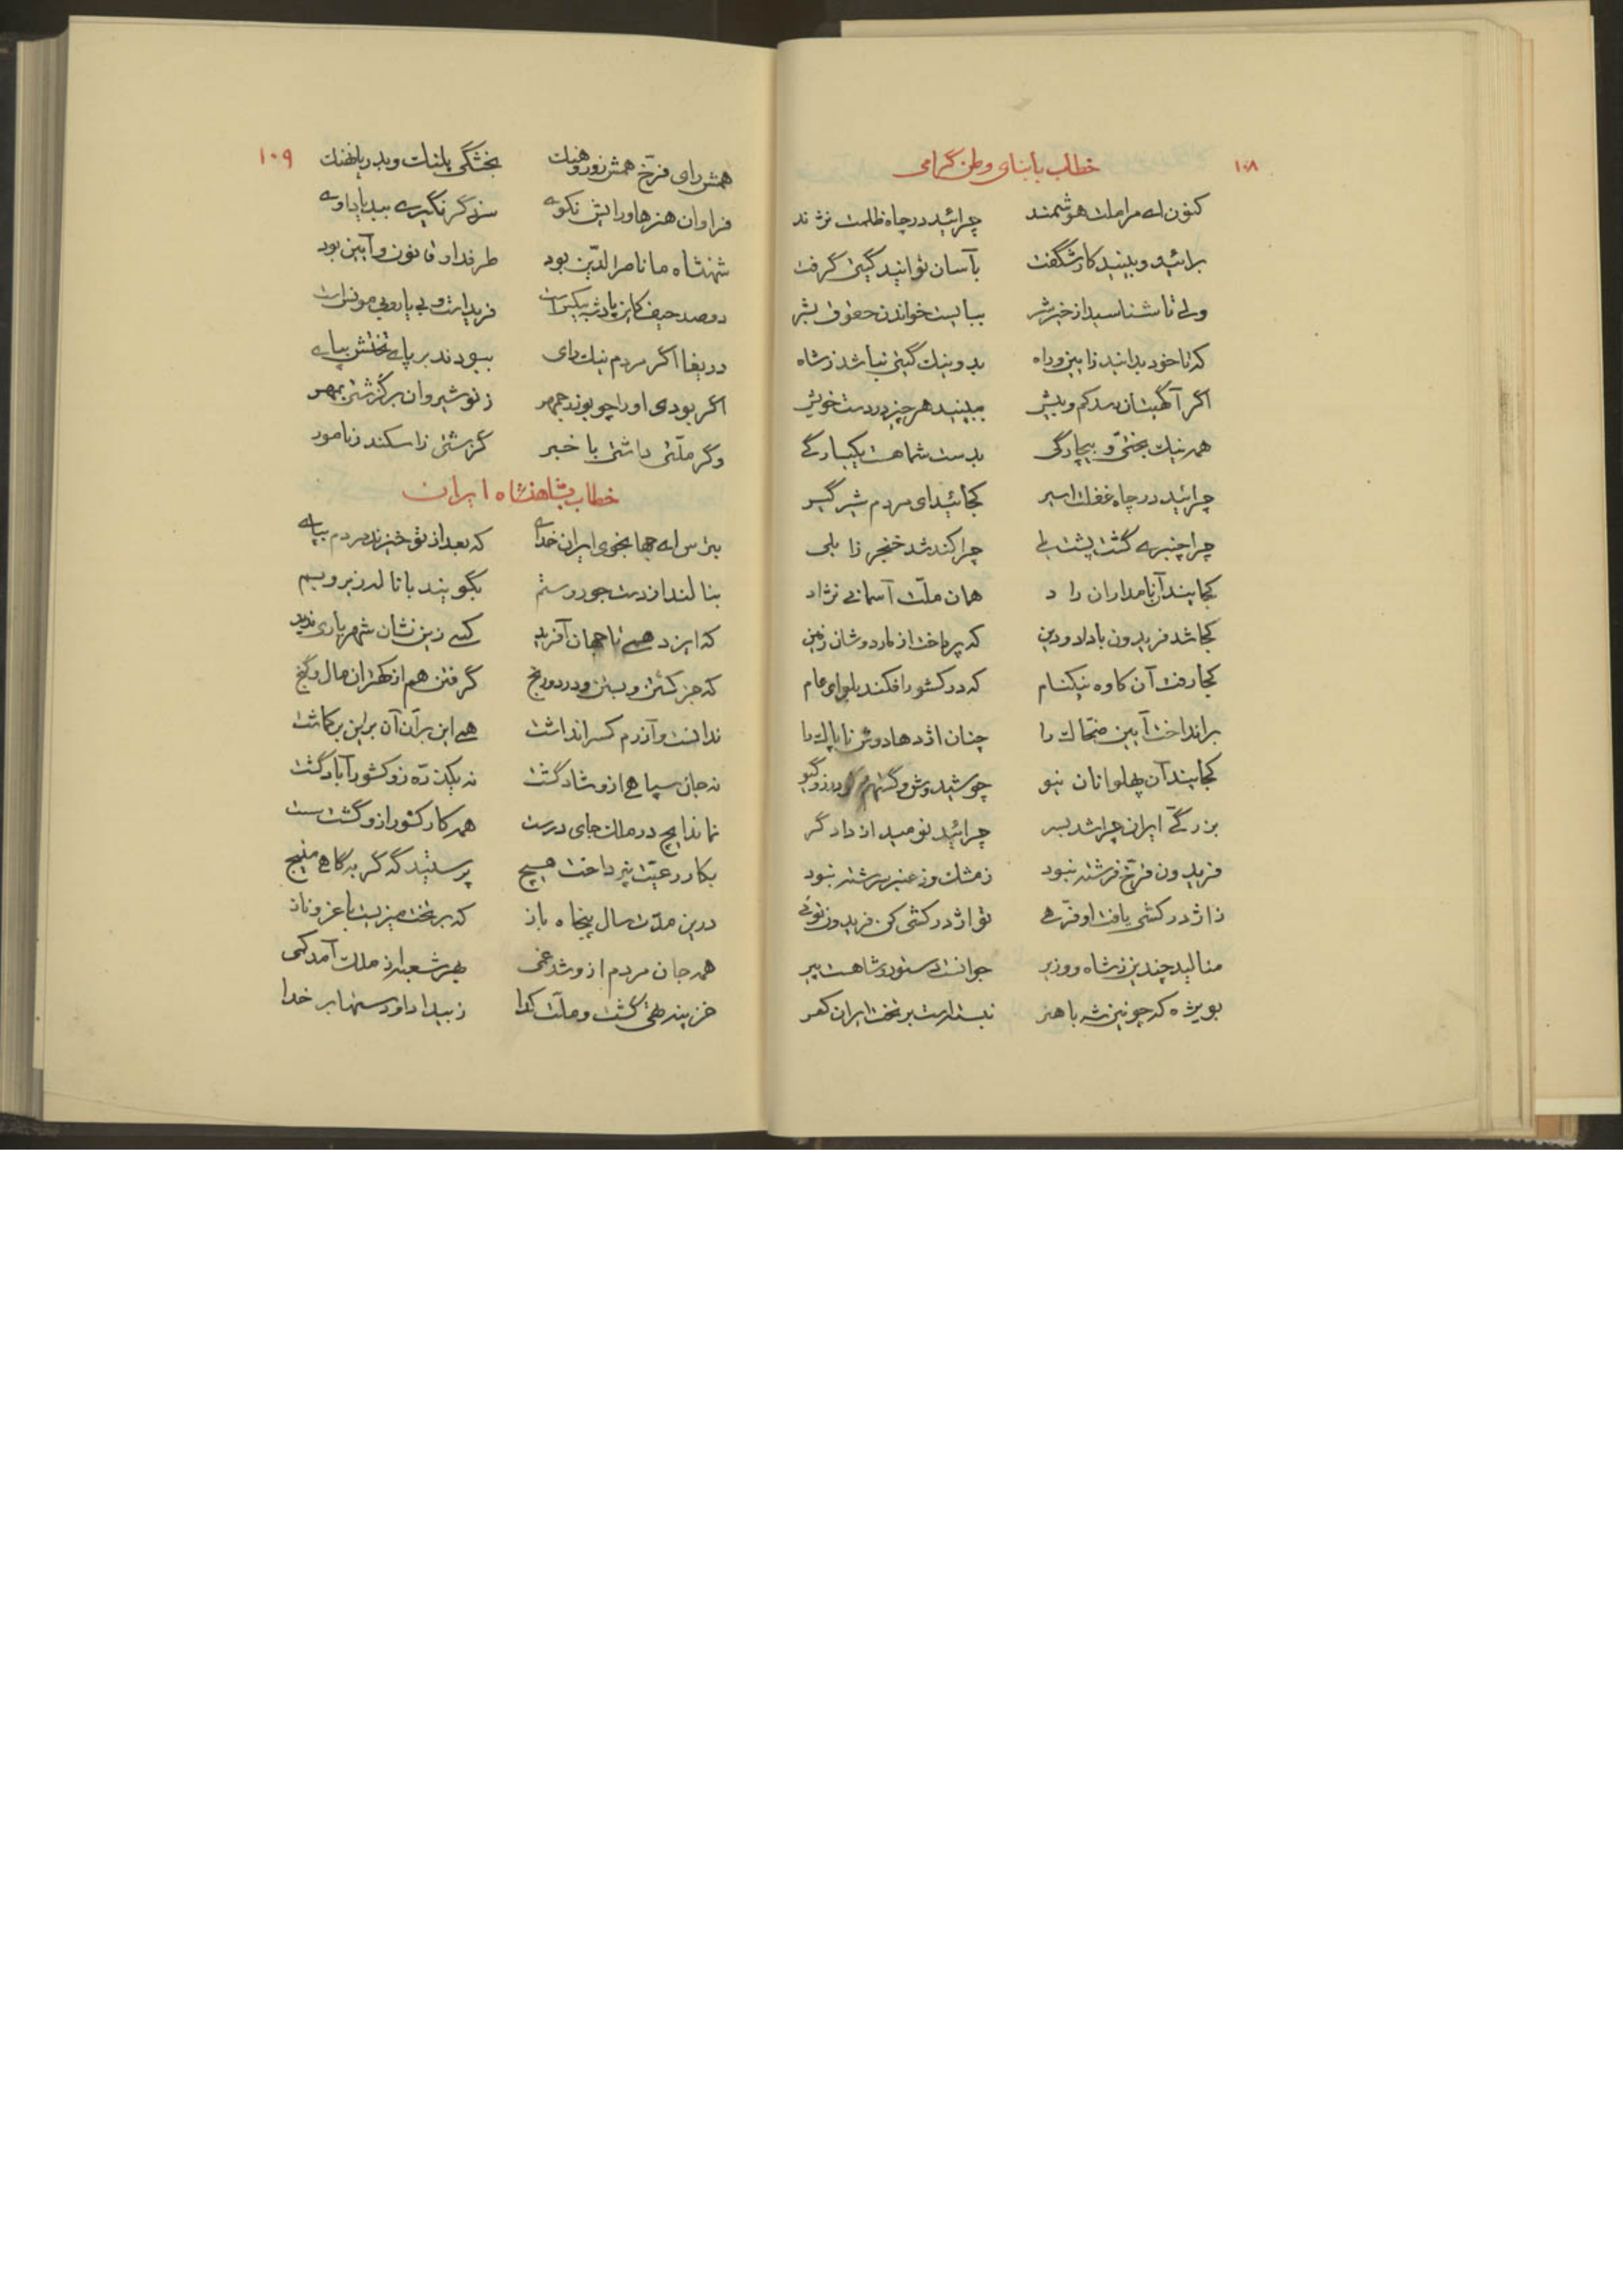 ۱۰۸
خطاب بأبنای وطن گرامی
کنون ای مرا ملت هوشمند چرائید در چاه ظلمت نژند
برائید و ببینید کار شگفت بآسان توانید گیتی گرفت
ولی تا شناسید از خیر شر ببایست خواندن حقوق بشر
که تا خود بدانید ز آیین و راه بد و نیک گیتی نباشد ز شاه
اگر آگهیتان رسد کم و بیش ببینید هر چیز در دست خویش
همه نیک بختی و بیچارگی بدست شما هست یکبارگی
چرائید در چاه غفلت اسیر کجائید ای مردم شیر گیر
چرا چنبری گشت پشت یلی چرا کند شد خنجر زابلی
کجایند آن نامداران راد همان ملت آسمانی نژاد
کجا شد فریدون با داد و دین که پرداخت از مار دوشان زمین
کجا رفت آن کاوه نیکنام که در کشور افکند بلوای عام
برانداخت آیین ضحاک را چنان اژدها دوش ناپاک را
کجایند آن پهلوانان نیو چو شیدوش و گستهم گودرز و گیو
بزرگی ایران چرا شد بسر چرائید نومید از دادگر
فریدون فرخ فرشته نبود ز مشک و ز عنبر سرشته نبود
ز اژدر کشی یافت او فرهی تو اژدر کشی کن فریدون توئی
منالید چندین ز شاه و وزیر جوانست دستور و شاهست پیر
بویژه که چونین شه با هنر نبسته است بر تخت ایران کمر
۱۰۹
همش رای فرخ همش زور و هنگ بخشگی پلنگ و بدریا نهنگ
فراوان هنرها و رایش نکوی سزد گر نگیری ببد یاد اوی
شهنشاه ما ناصر الدین بود طرفدار قانون و آیین بود
دو صد حیف کاین پادشه بیکس است فریدست و بی یار و بی مونس است
دریغا اگر مردم نیک رای ببودند بر پای تختش بپای
اگر بودی او را چو بوذرجمهر ز نوشیروان برگذشتی بمهر
وگر ملتی داشتی با خبر گذشتی ز اسکندر نامور
خطاب بشاهنشاه ایران
بترس ای جهانجوی ایران خدای که بعد از تو خیزند مردم بپای
بنالند از دست جور و ستم بگویند با ناله زیر و بم
که ایزد همی تا جهان آفرید کسی زین نشان شهریاری ندید
که جز کشتن و بستن و درد و رنج گرفتن هم از کهتران مال و گنج
ندانست و آزرم کس را نداشت همی این بر آن آن بر این برگماشت
نه جان سپاهی ازو شاد گشت نه یکذره زو کشور آباد گشت
نماند ایچ در ملک جای درست همه کار کشور ازو گشت سست
بکار رعیت نپرداخت هیچ پرستید گه گربه گاهی ملیج
درین مدت سال پنجاه باز که بر تخت میزیست با عز و ناز
همه جان مردم ازو شد غمی بهر شعبه از ملک آمد کمی
خزینه تهی گشت و ملت گدا ز بیداد او و ستمها بر خدا